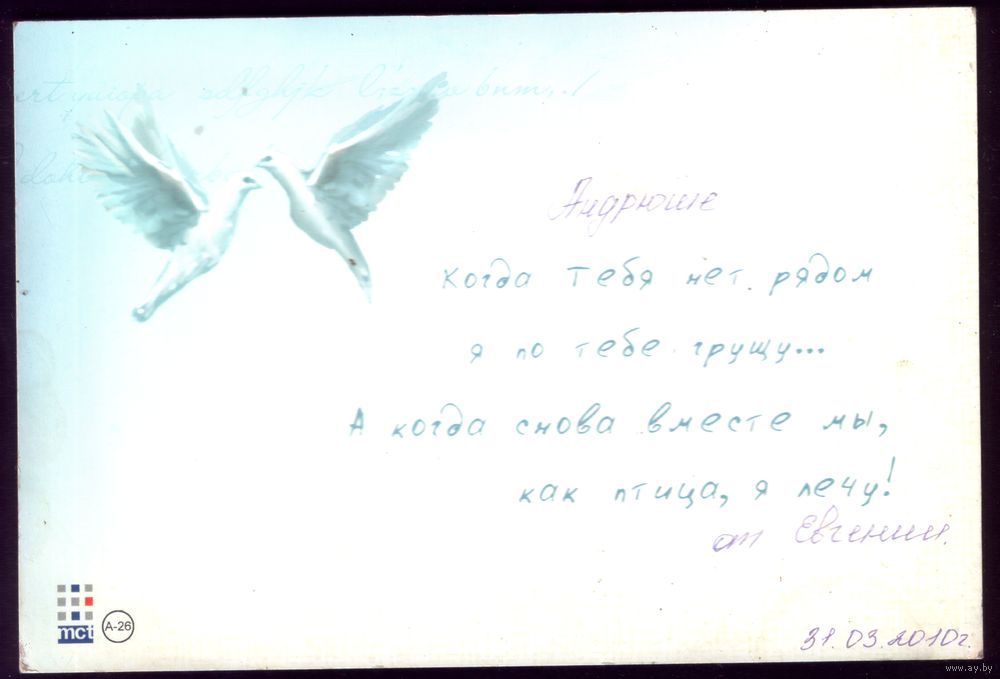 Андрюше
когда тебя нет рядом
я по тебе грущу...
А когда снова вместе мы,
как птица, я лечу!
от Евгении.
mct A-26
31.03.2010г.
www.ay.by